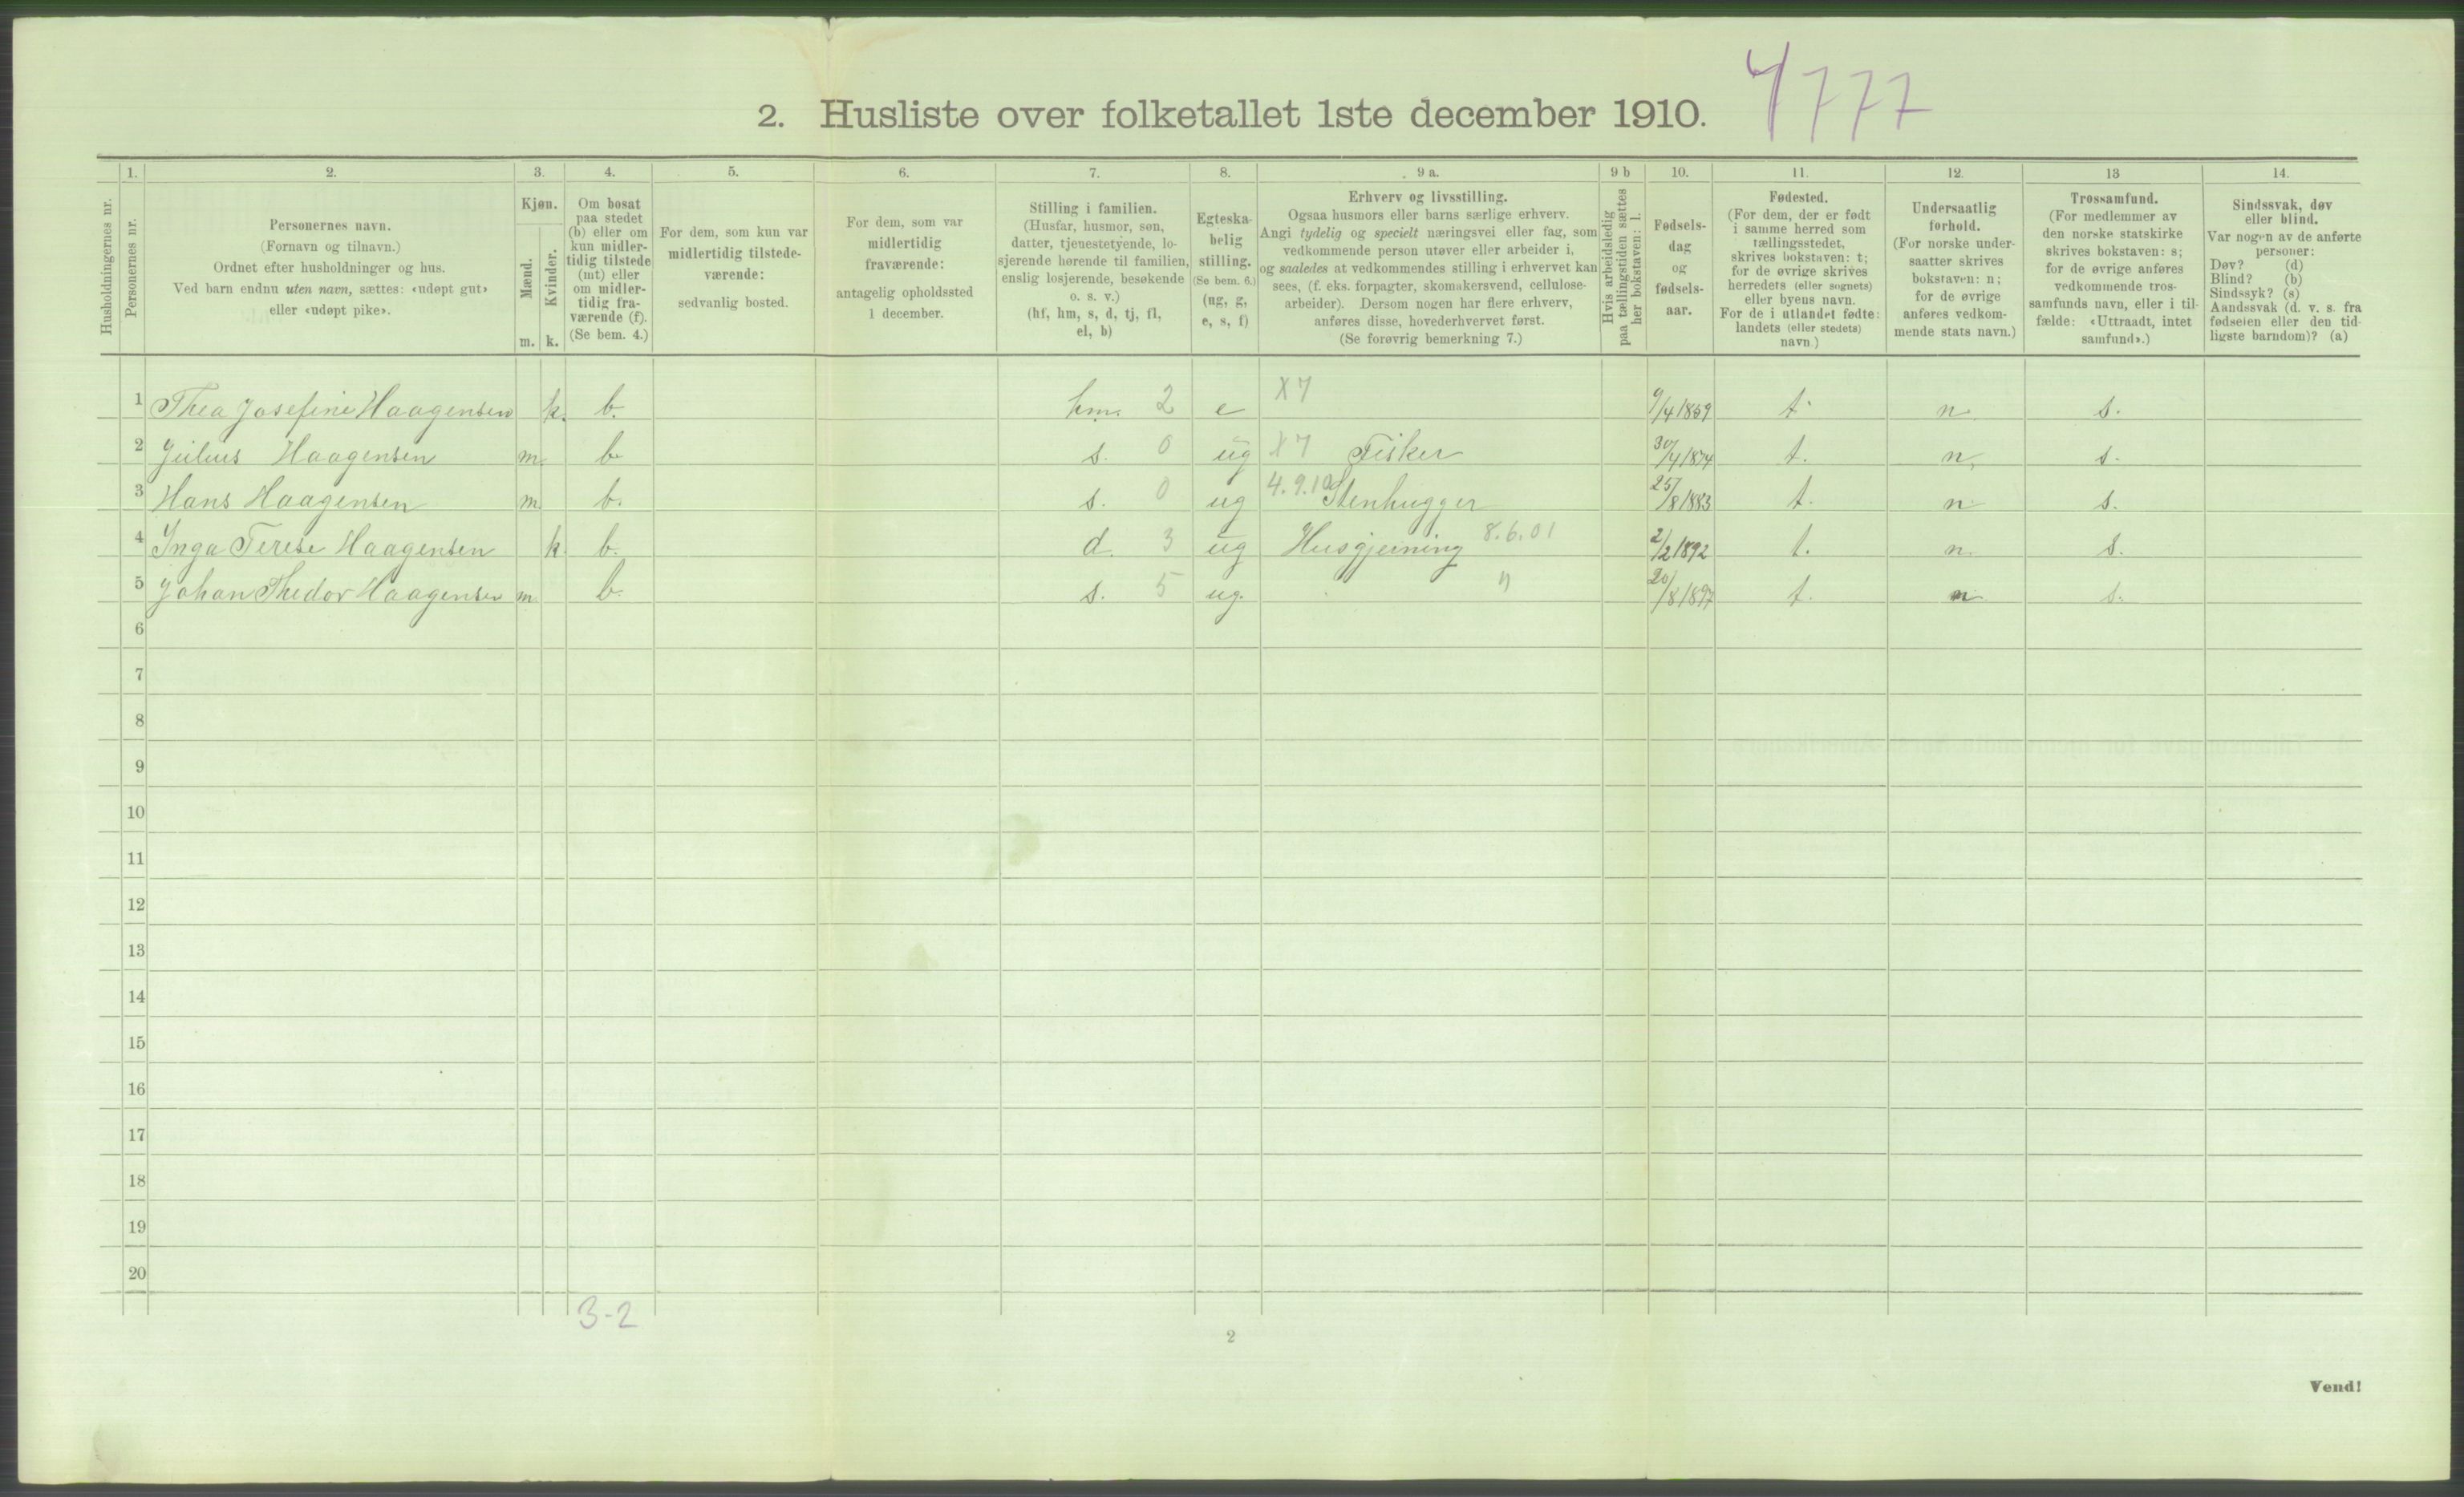 2. Husliste over folketallet 1ste december 1910. 4777
1. 2. 3. 4. 5. 6. 7. 8. 9 a. 9 b 10. 11. 12. 13 14.
Husholdningernes nr.
Personernes nr.
Personernes navn.
(Fornavn og tilnavn.)
Ordnet efter husholdninger og hus.
Ved barn endnu uten navn, sættes: «udøpt gut»
eller «udøpt pike».
Kjøn.
Mænd.
Kvinder.
m. k.
Om bosat
paa stedet
(b) eller om
kun midler-
tidig tilstede
(mt) eller
om midler-
tidig fra-
værende (f).
(Se bem. 4.)
For dem, som kun var
midlertidig tilstede-
værende:
sedvanlig bosted.
For dem, som var
midlertidig
fraværende:
antagelig opholdssted
1 december.
Stilling i familien.
(Husfar, husmor, søn,
datter, tjenestetyende, lo-
sjerende hørende til familien,
enslig losjerende, besøkende
o. s. v.)
(hf, hm, s, d, tj, fl,
el, b)
Egteska-
belig
stilling.
(Se bem. 6.)
(ug, g,
e, s, f)
Erhverv og livsstilling.
Ogsaa husmors eller barns særlige erhverv.
Angi tydelig og specielt næringsvei eller fag, som
vedkommende person utøver eller arbeider i,
og saaledes at vedkommendes stilling i erhvervet kan
sees, (f. eks. forpagter, skomakersvend, cellulose-
arbeider). Dersom nogen har flere erhverv,
anføres disse, hovederhvervet først.
(Se forøvrig bemerkning 7.)
Hvis arbeidsledig
paa tællingstiden sættes
her bokstaven: l.
Fødsels-
dag
og
fødsels-
aar.
Fødested.
(For dem, der er født
i samme herred som
tællingsstedet,
skrives bokstaven: t;
for de øvrige skrives
herredets (eller sognets)
eller byens navn.
For de i utlandet fødte:
landets (eller stedets)
navn.)
Undersaatlig
forhold.
(For norske under-
saatter skrives
bokstaven: n;
for de øvrige
anføres vedkom-
mende stats navn.)
Trossamfund.
(For medlemmer av
den norske statskirke
skrives bokstaven: s;
for de øvrige anføres
vedkommende tros-
samfunds navn, eller i til-
fælde: «Uttraadt, intet
samfund».)
Sindssvak, døv
eller blind.
Var nogen av de anførte
personer:
Døv? (d)
Blind? (b)
Sindssyk? (s)
Aandssvak (d. v. s. fra
fødselen eller den tid-
ligste barndom)? (a)
1 Thea Josefine Haagensen k. b. hm. 2 e X7 9/4 1859 t. n. s.
2 Julius Haagensen m. b. s. 0 ug X7 Fisker 30/4 1874 t. n. s.
3 Hans Haagensen m. b. s. 0 ug 4.9.10 Stenhugger 25/8 1883 t. n. s.
4 Inga Terese Haagensen k. b. d. 3 ug Husgjerning 8.6.01 2/2 1892 t. n. s.
5 Johan Thedor Haagensen m. b. s. 5 ug. " 20/8 1897 t. n. s.
6
7
8
9
10
11
12
13
14
15
16
17
18
19
20
3-2
2
Vend!